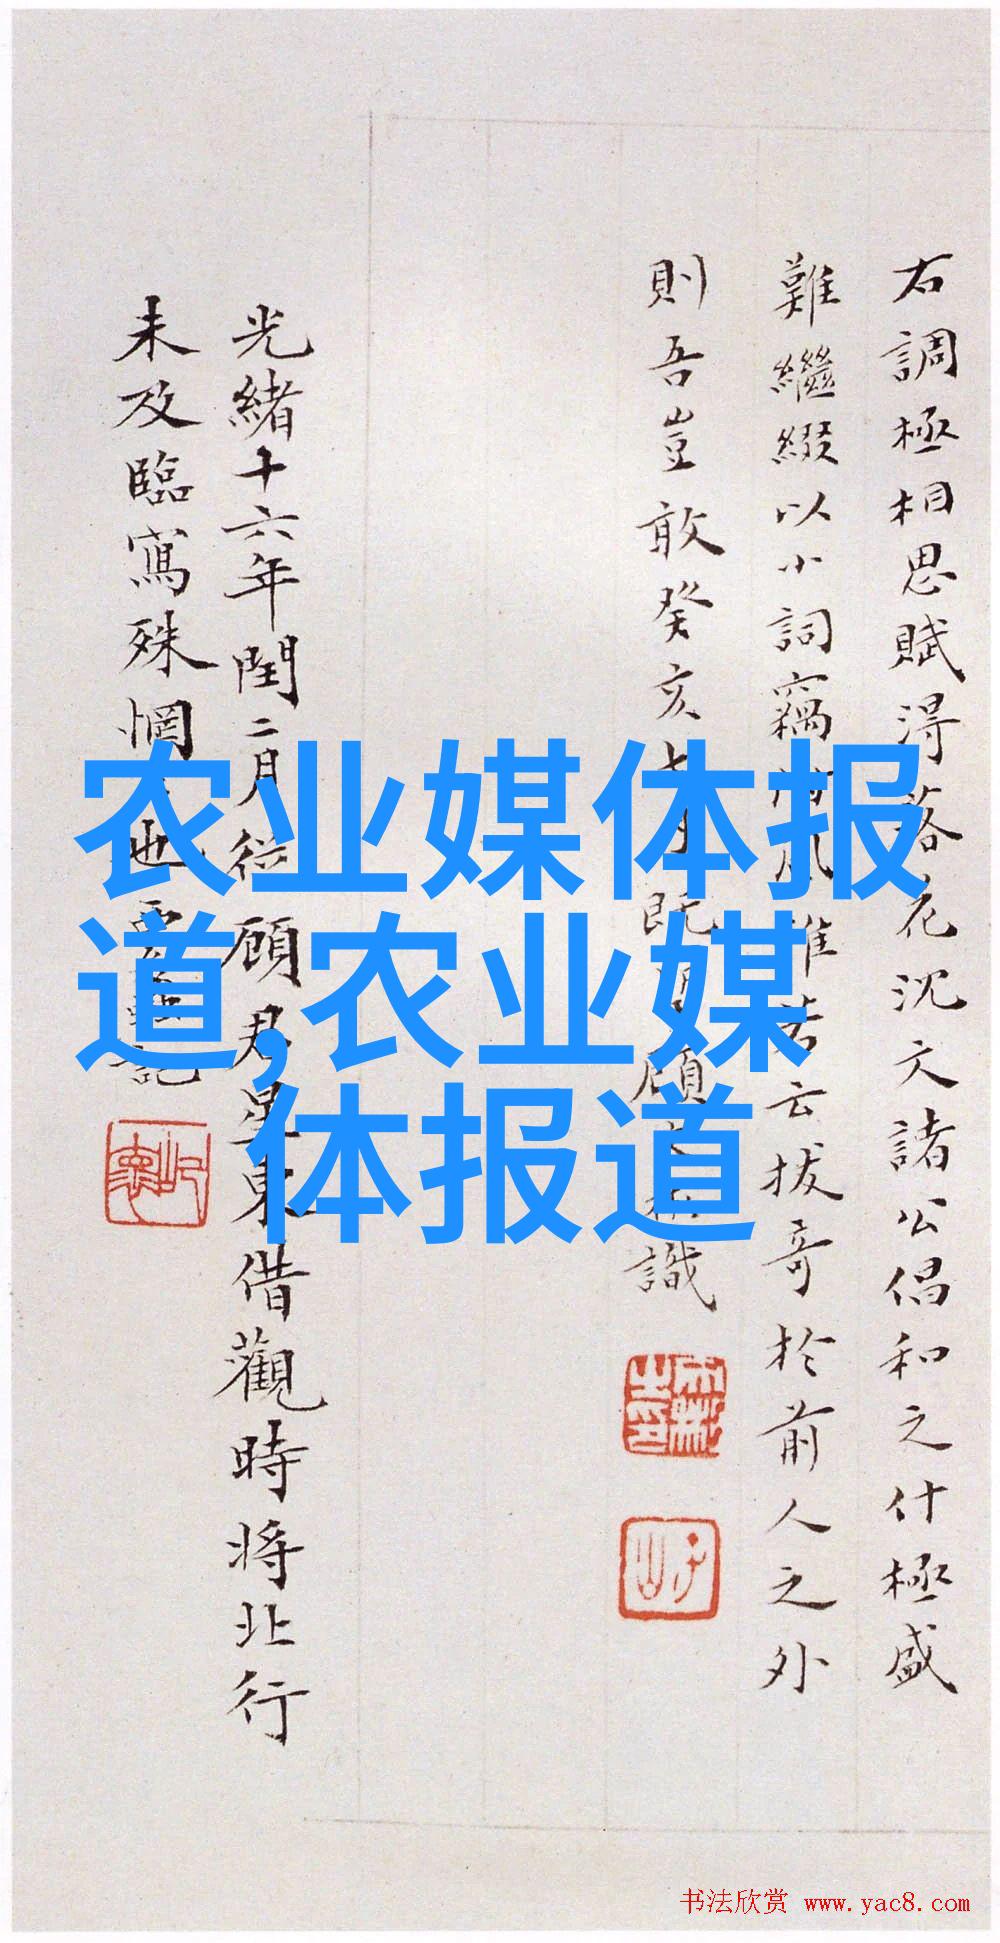 右調極相思賦得落花沈文諸公倡和之什極盛
難繼綴以小詞竊附風雅若云拔奇於前人之外
則吾豈敢癸亥七月既望顧文彬識
光緒十六年閏二月從顧君星東借觀時將北行
未及臨寫殊惘
也
記
农业媒体报
道,农业媒
体报道
书法欣赏 www.yac8.com